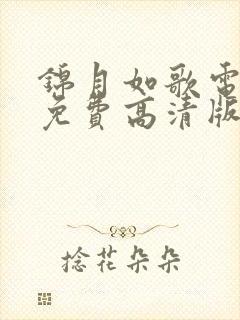 錦月如歌電
免費高清版
捻花朵朵